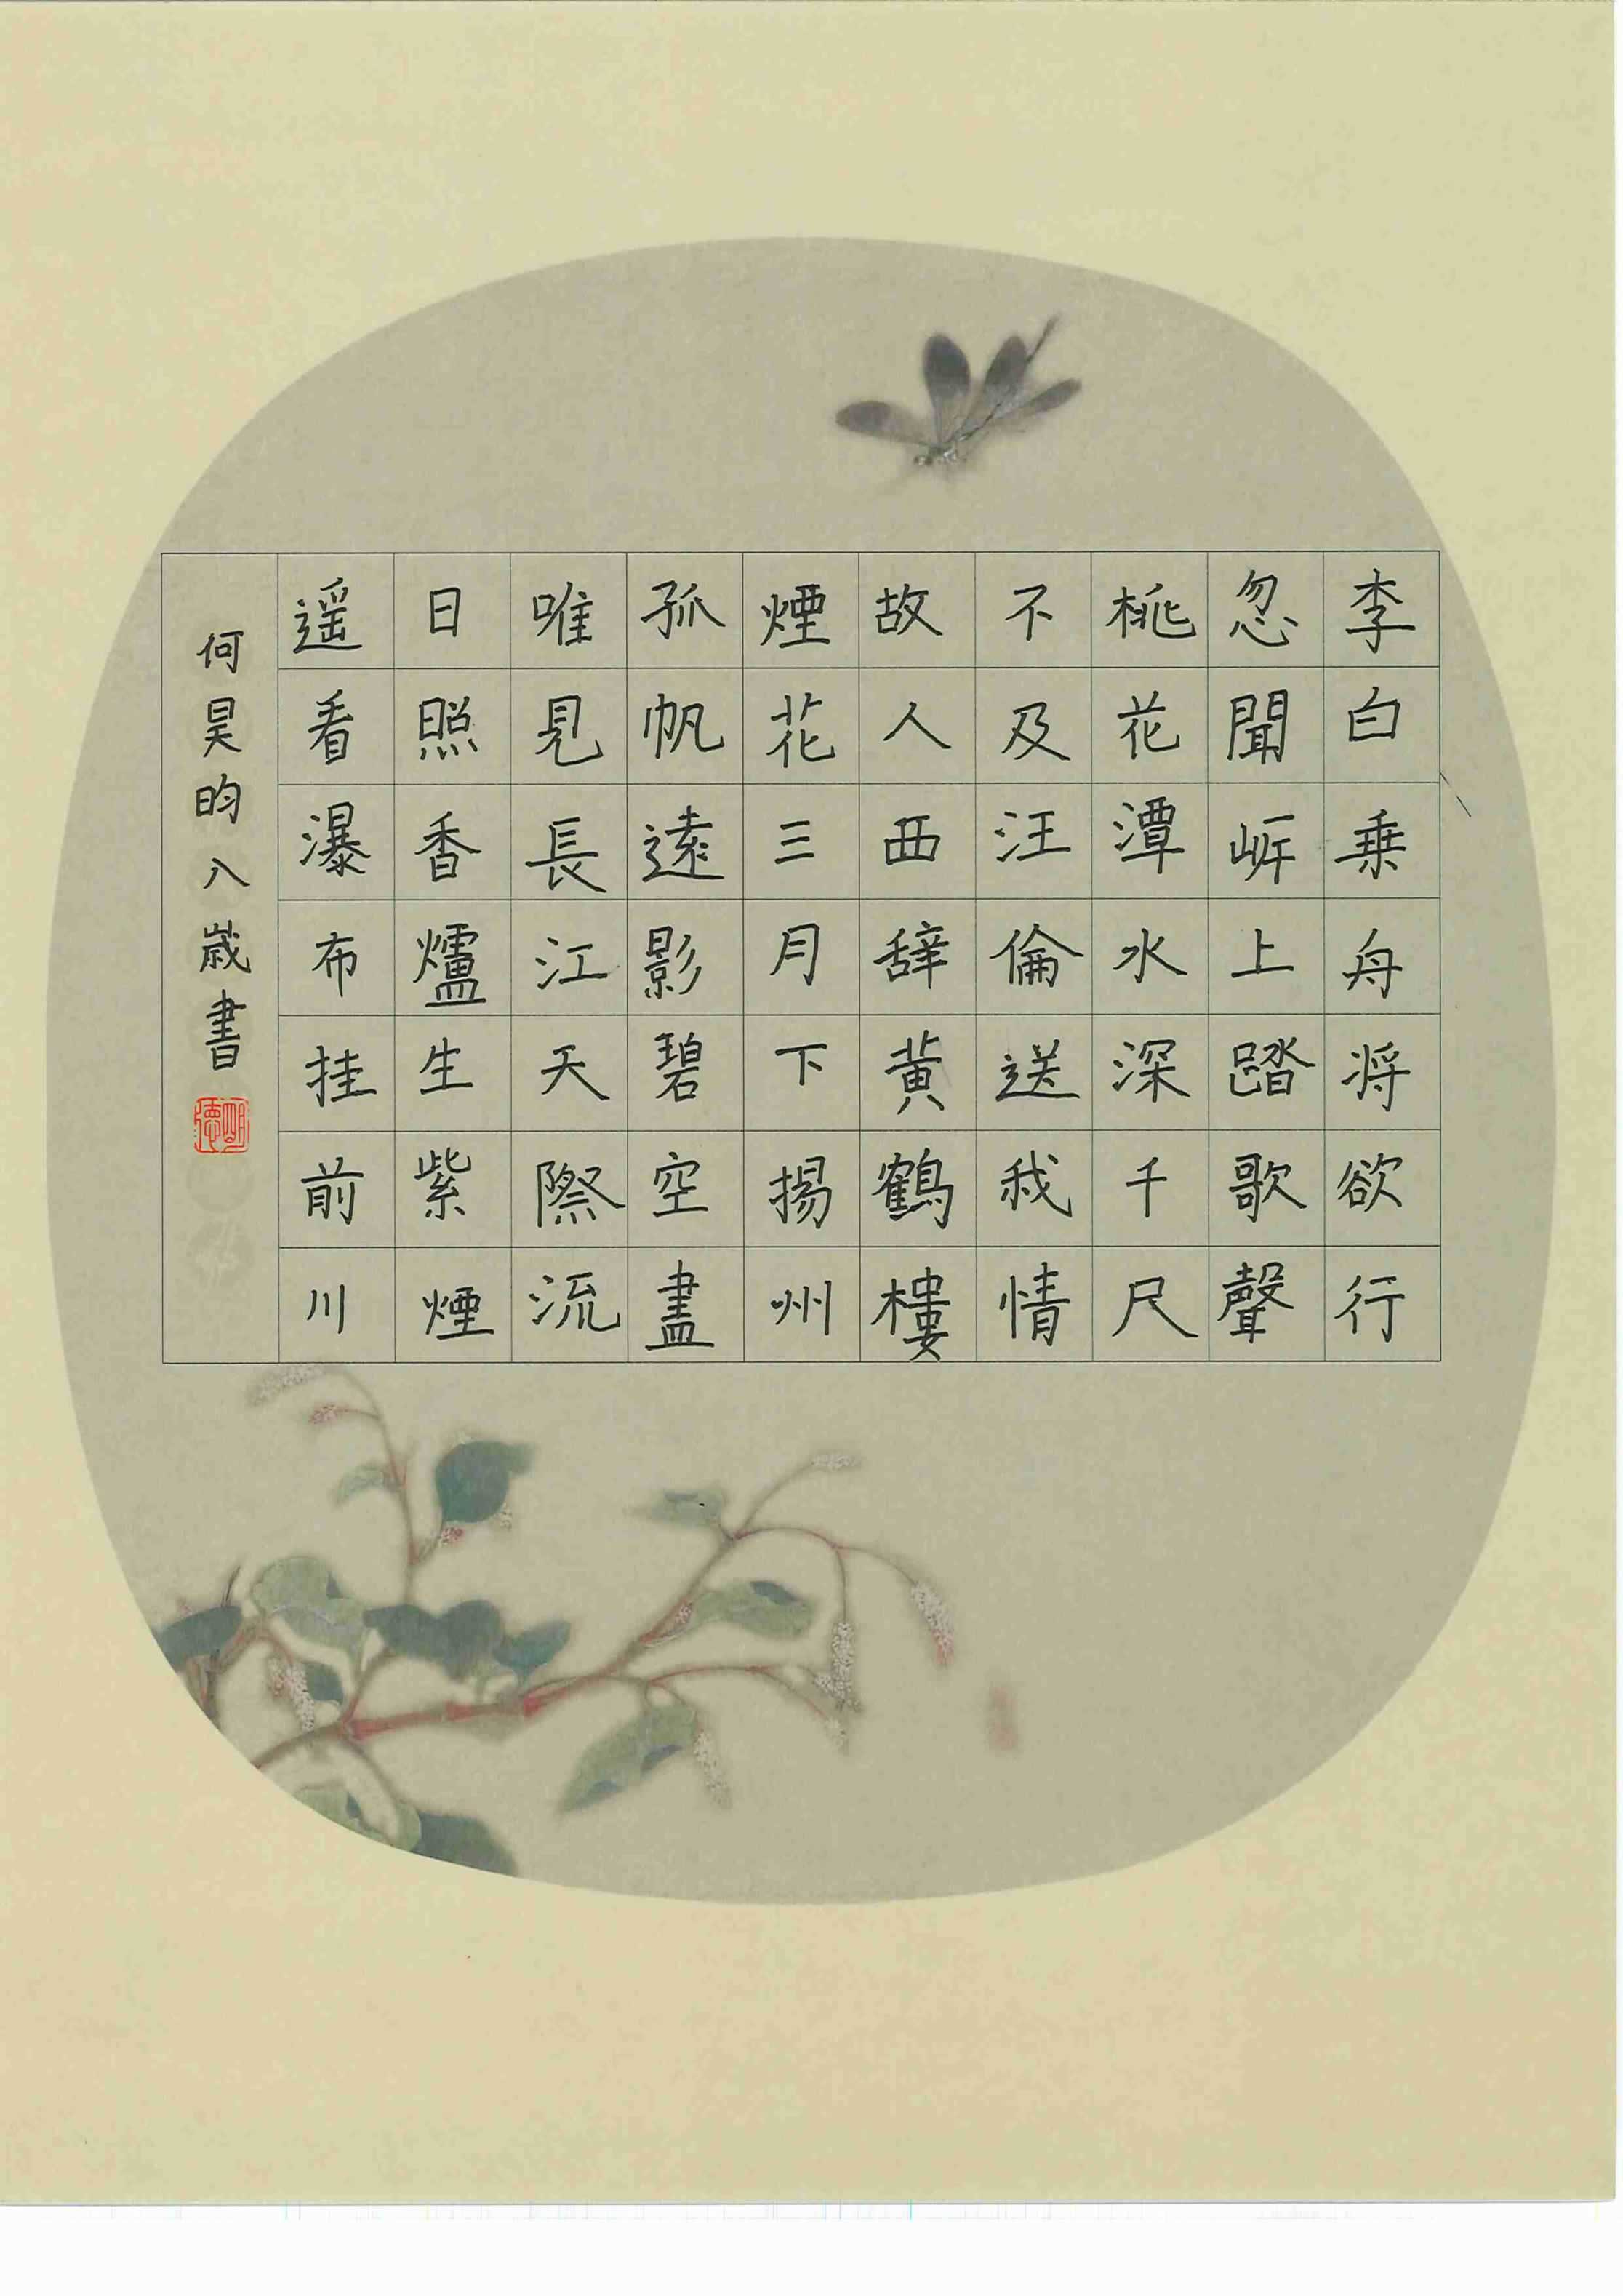 李白乗舟将欲行
忽聞岍上踏歌聲
桃花潭水深千尺
不及汪倫送我情
故人西辞黄鶴樓
煙花三月下揚州
孤帆遠影碧空盡
唯見長江天際流
日照香爐生紫煙
遥看瀑布挂前川
何昊昀八歲書